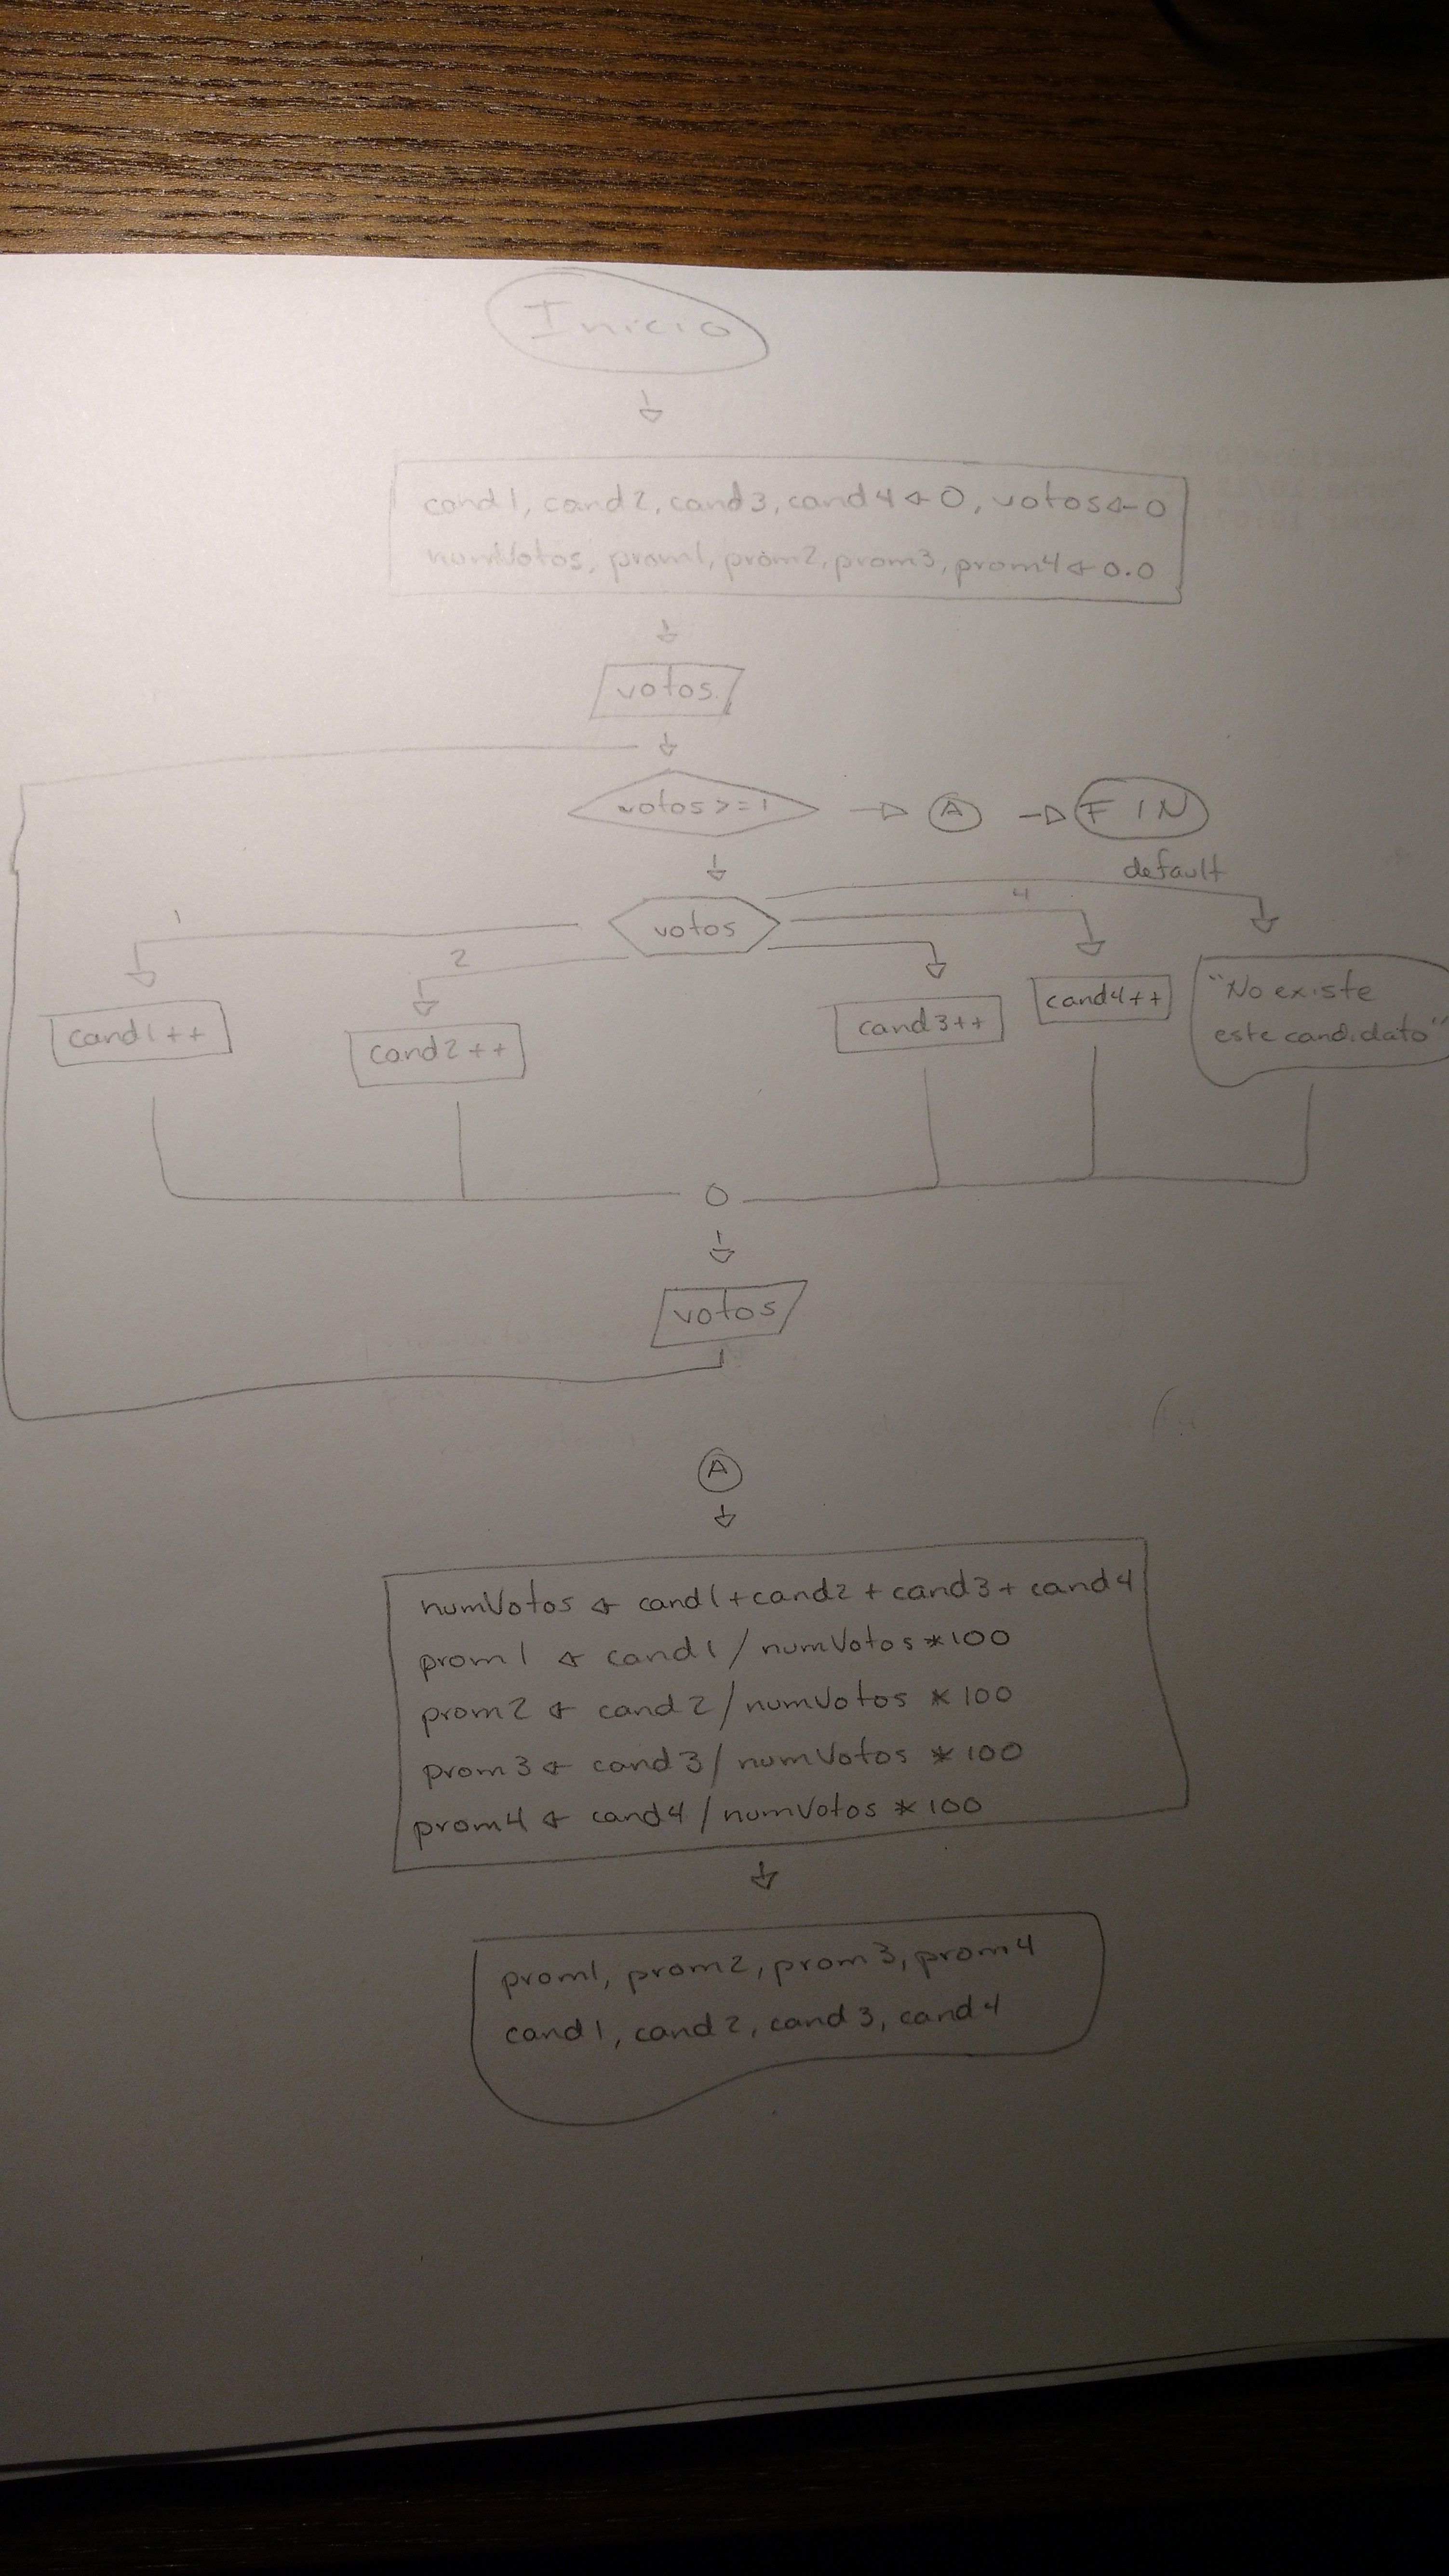 Inicio
cand1, cand2, cand3, cand4 ← 0, votos ← 0
numVotos, prom1, prom2, prom3, prom4 ← 0.0
votos
votos >= 1
A
FIN
default
votos
1
2
4
cand1++
cand2++
cand3++
cand4++
"No existe
este candidato"
votos
A
numVotos ← cand1 + cand2 + cand3 + cand4
prom1 ← cand1 / numVotos * 100
prom2 ← cand2 / numVotos * 100
prom3 ← cand3 / numVotos * 100
prom4 ← cand4 / numVotos * 100
prom1, prom2, prom3, prom4
cand1, cand2, cand3, cand4